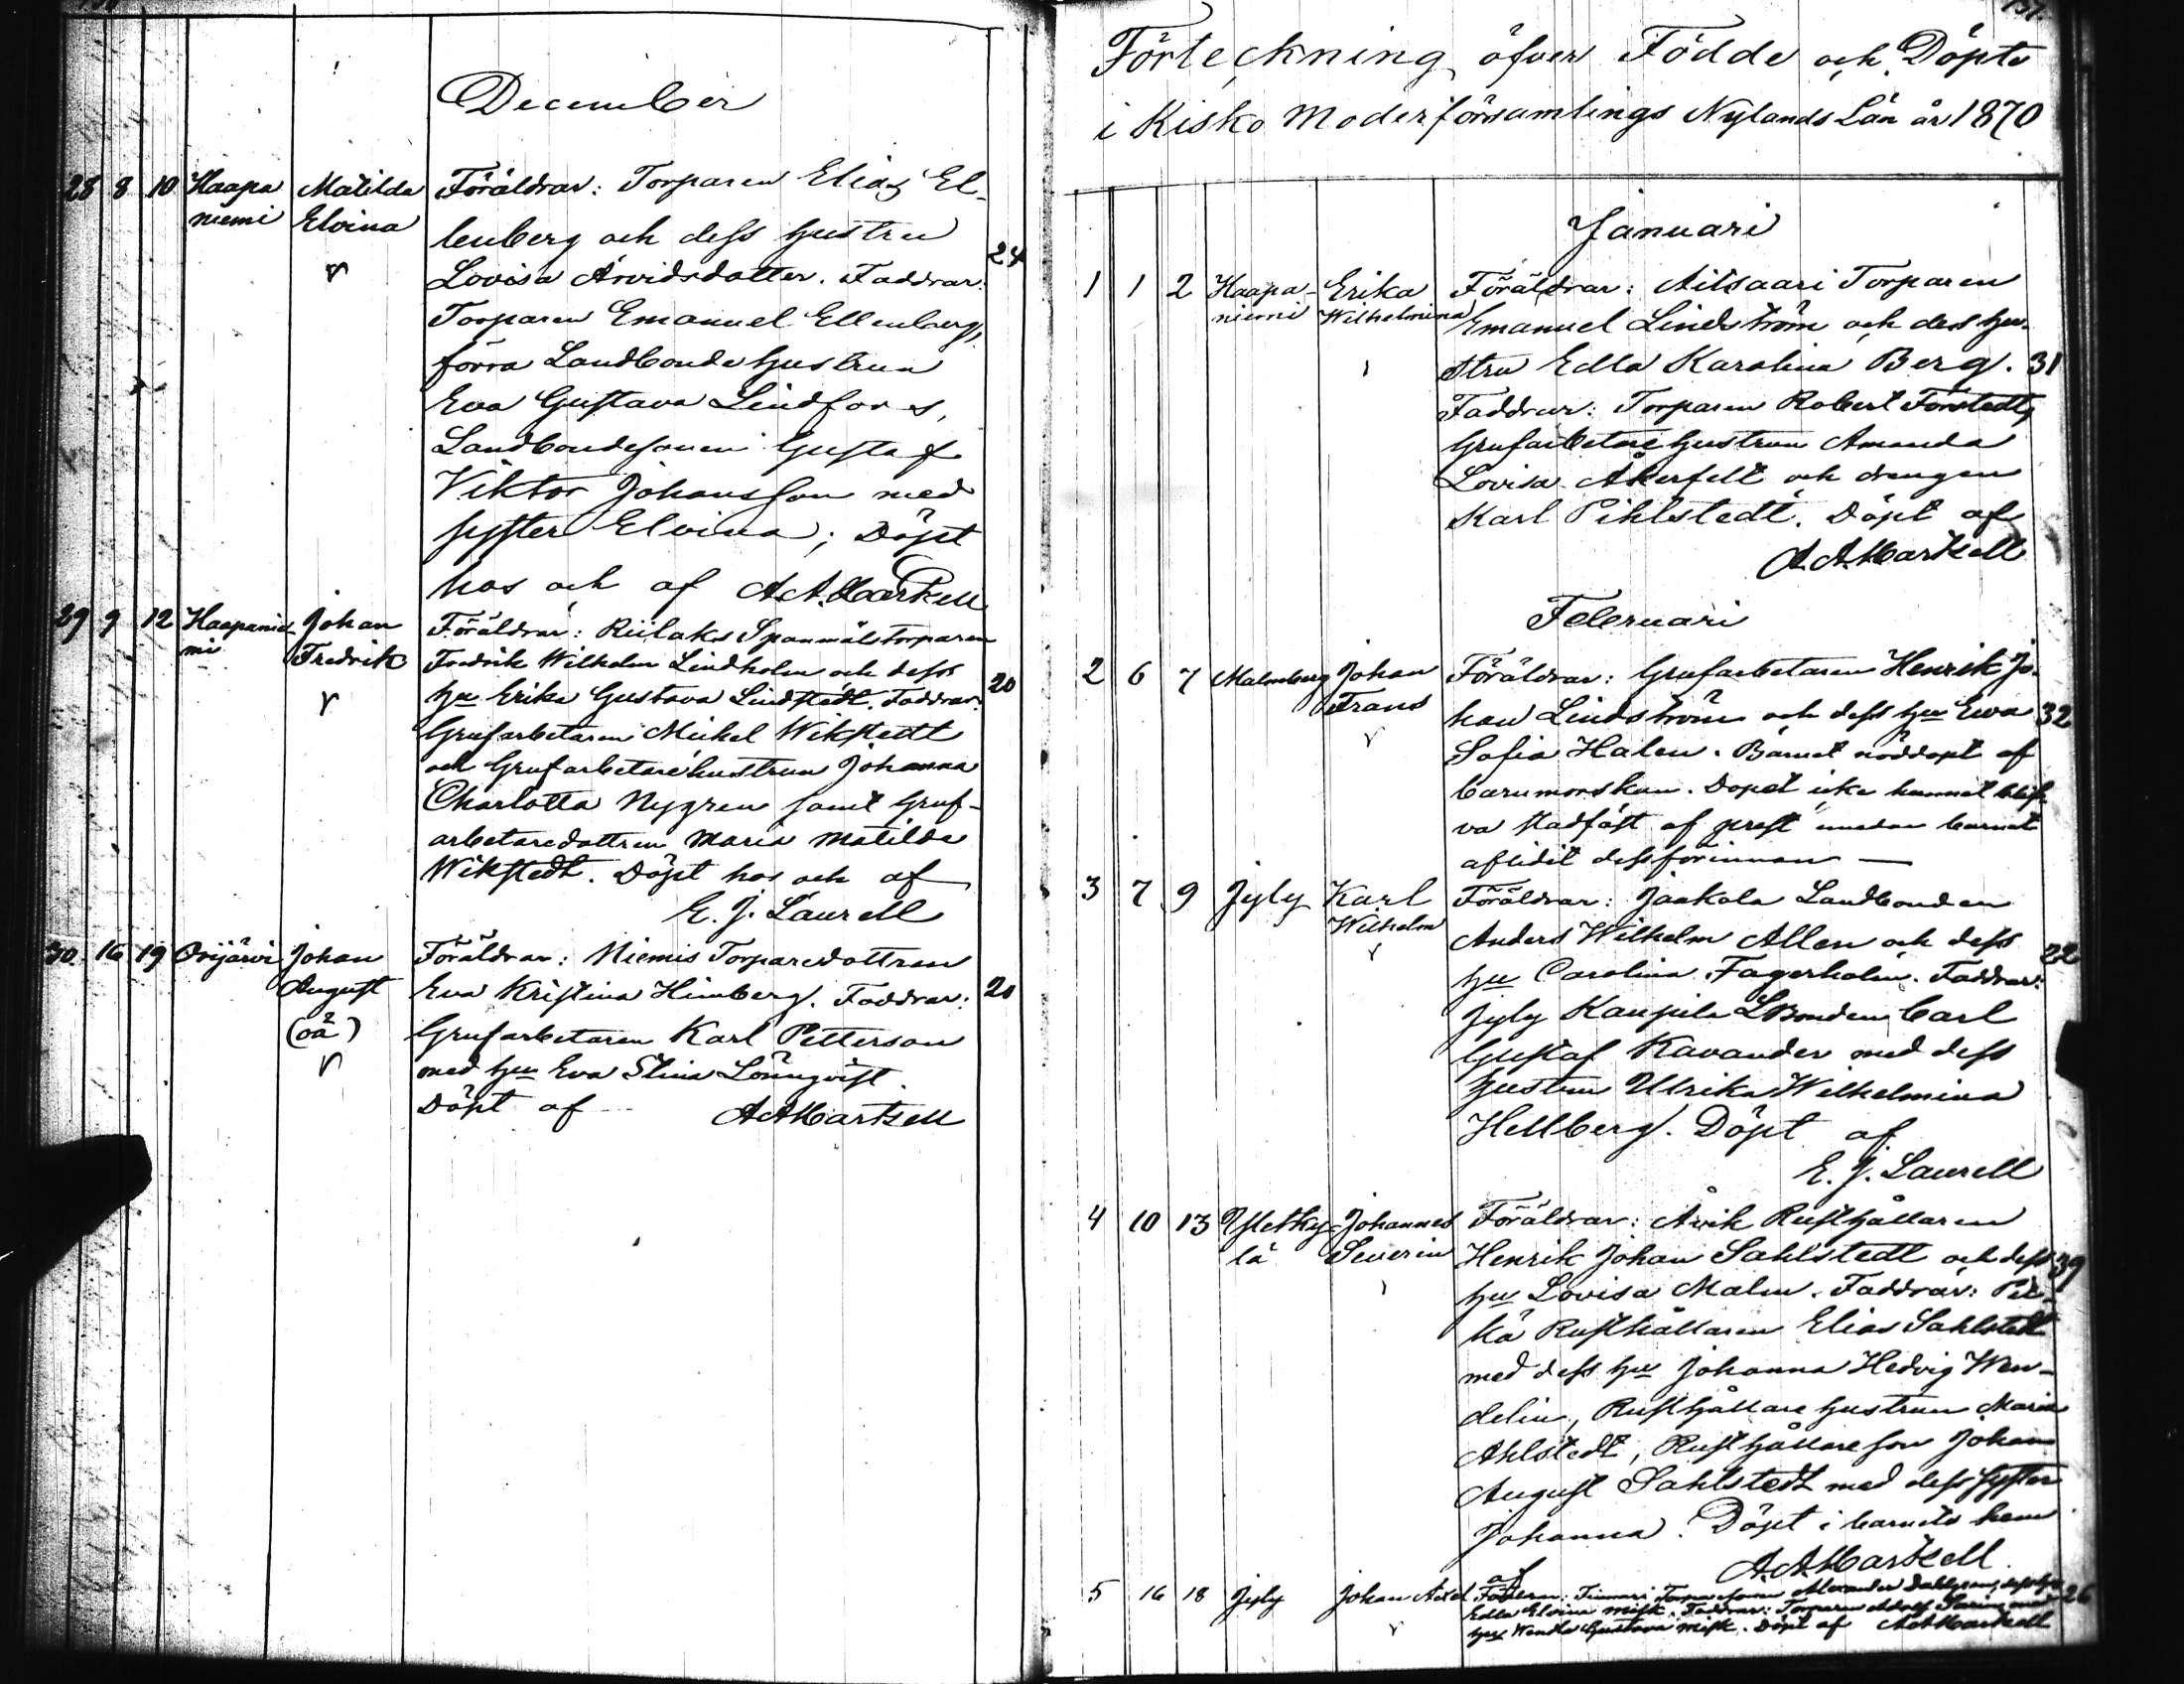 December
28 8 10 Haapa Matilda Föräldrar: Torparen Elias El-
niemi Elvina lenberg och dess hustru
Lovisa Arvidsdotter. Faddrar: 24
Torparen Emanuel Ellenberg,
förra Landbonde hustrun
Eva Gustava Lindfors,
Landbondesonen Gustaf
Viktor Johansson med
syster Elvina; Döpt
hos och af A.A. Markell
29 9 12 Haapanie- Johan Föräldrar: Riilaks Spanmålstorparen
mi Fredrik Fredrik Wilhelm Lindholm och dess
hu Erika Gustava Lindstedt. Faddrar: 20
Grufarbetaren Mickel Wikstedt
och Grufarbetarehustrun Johanna
Charlotta Nygren samt Gruf-
arbetaredottren Maria Matilda
Wikstedt. Döpt hos och af
E. J. Laurell
30. 16 19 Orijärvi Johan Föräldrar: Niemis Torparedottren
August Eva Kristina Himberg. Faddrar: 20
(oä) Grufarbetaren Karl Petterson
med hu Eva Stina Lönnqvist.
Döpt af A A Markell
Förteckning öfver Födde och Döpte
i Kisko Moderförsamlings Nylands Län år 1870
Januari
1 1 2 Haapa- Erika Föräldrar: Ailsaari Torparen
niemi Wilhelmina Emanuel Lindström och dess hu-
stru Edla Karolina Berg. 31
Faddrar: Torparen Robert Forstedt,
Grufarbetare hustrun Amanda
Lovisa Åkerfelt och drengen
Karl Pihlstedt. Döpt af
A.A. Markell
Februari
2 6 7 Malmberg Johan Föräldrar: Grufarbetaren Henrik Jo-
Frans han Lindström och dess hu Eva 32
Sofia Halen. Barnet nöddöpt af
barnmorskan. Dopet icke hunnit blif-
va stadfäst af prest emedan barnet
aflidit dessförinnan —
3 7 9 Jyly Karl Föräldrar: Jaakola Landbonden
Wilhelm Anders Wilhelm Allen och dess
hu Carolina Fagerholm. Faddrar: 22
Jyly Kaupila LBonden Carl
Gustaf Kavander med dess
hustru Ulrika Wilhelmina
Hellberg. Döpt af
E. J. Laurell
4 10 13 Johannes Föräldrar: Åvik Rusthållaren
lä Severin Henrik Johan Sahlstedt och dess 39
hu Lovisa Malm. Faddrar:
kä Rusthållaren Elias Sahlstedt
med dess hu Johanna Hedvig Wen-
delin, Rusthållare hustrun Maria
Ahlstedt, Rusthållareson Johan
August Sahlstedt med dess syster
Johanna. Döpt i barnets hem
af A.A. Markell.
5 16 18 Jyly Johan Axel Alexander 26
Edla Elvina Faddrar: Torparen Adolf med
hu Wendla Gustava Döpt af A A Markell